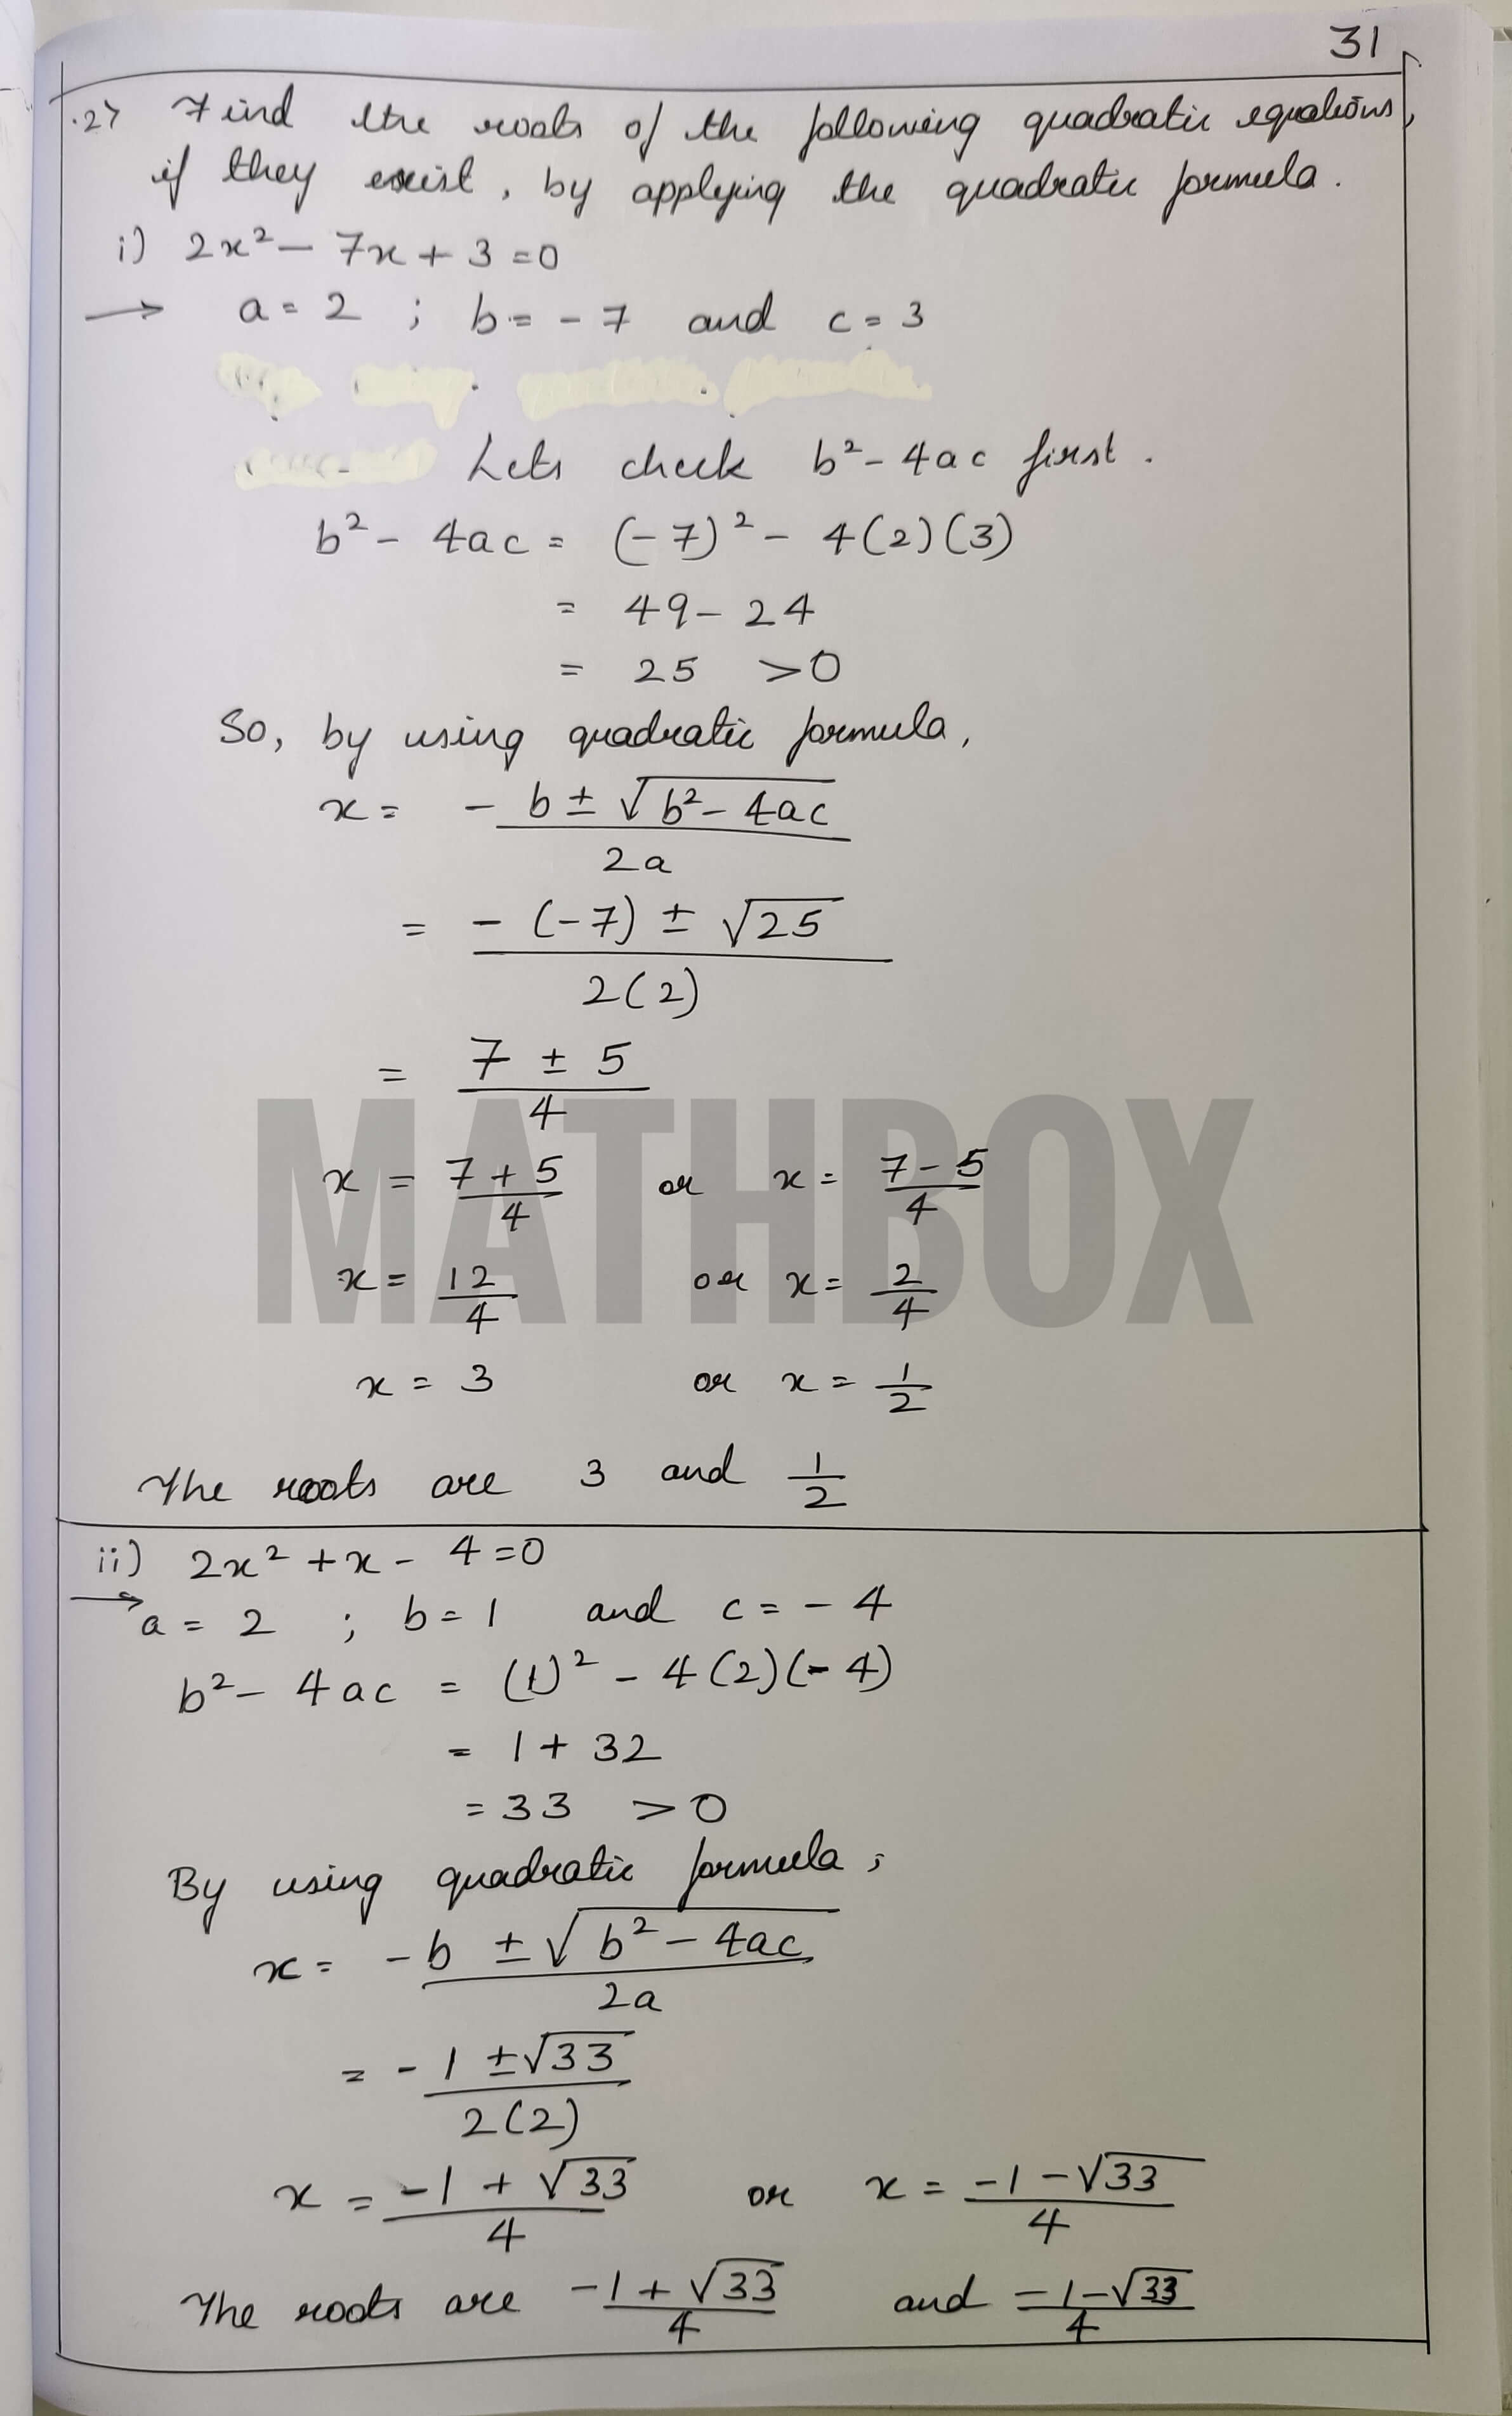 31
2> Find the roots of the following quadratic equations,
if they exist, by applying the quadratic formula.
i) 2x² - 7x + 3 = 0
→ a = 2 ; b = - 7 and c = 3
Lets check b² - 4ac first.
b² - 4ac = (-7)² - 4(2)(3)
= 49 - 24
= 25 > 0
So, by using quadratic formula,
x = - b ± √b² - 4ac
2a
= - (-7) ± √25
2(2)
= 7 ± 5
4
x = 7 + 5 / 4 or x = 7 - 5 / 4
x = 12 / 4 or x = 2 / 4
x = 3 or x = 1 / 2
The roots are 3 and 1 / 2
ii) 2x² + x - 4 = 0
→ a = 2 ; b = 1 and c = - 4
b² - 4ac = (1)² - 4(2)(-4)
= 1 + 32
= 33 > 0
By using quadratic formula,
x = -b ± √b² - 4ac
2a
= -1 ± √33
2(2)
x = -1 + √33 / 4 or x = -1 - √33 / 4
The roots are -1 + √33 / 4 and -1 - √33 / 4
MATHBOX